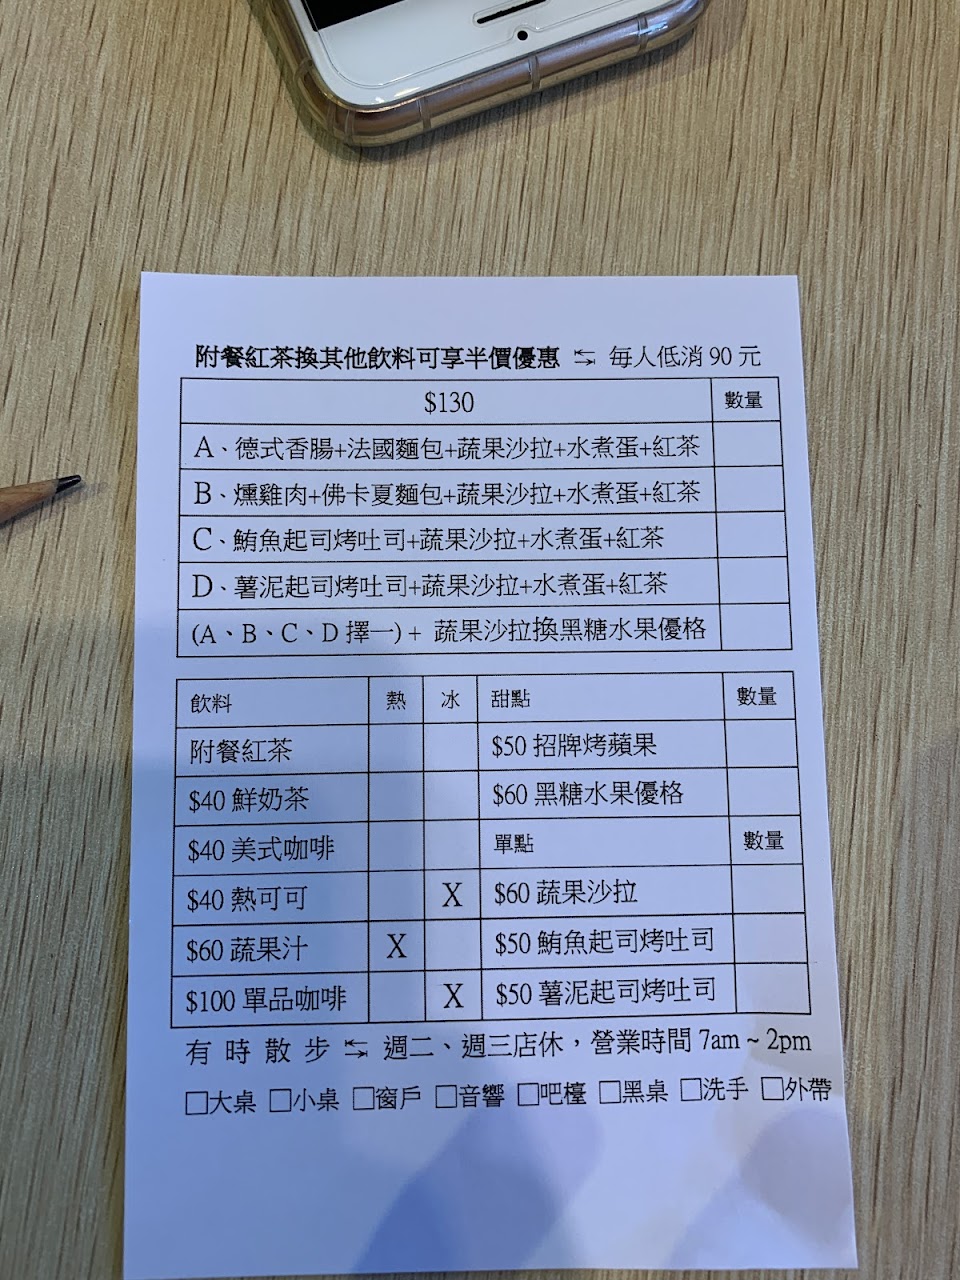 附餐紅茶換其他飲料可享半價優惠 ⇆ 每人低消 90 元
$130 數量
A、德式香腸+法國麵包+蔬果沙拉+水煮蛋+紅茶
B、燻雞肉+佛卡夏麵包+蔬果沙拉+水煮蛋+紅茶
C、鮪魚起司烤吐司+蔬果沙拉+水煮蛋+紅茶
D、薯泥起司烤吐司+蔬果沙拉+水煮蛋+紅茶
(A、B、C、D 擇一) + 蔬果沙拉換黑糖水果優格
飲料 熱 冰 甜點 數量
附餐紅茶 $50 招牌烤蘋果
$40 鮮奶茶 $60 黑糖水果優格
$40 美式咖啡 單點 數量
$40 熱可可 X $60 蔬果沙拉
$60 蔬果汁 X $50 鮪魚起司烤吐司
$100 單品咖啡 X $50 薯泥起司烤吐司
有 時 散 步 ⇆ 週二、週三店休，營業時間 7am ~ 2pm
□大桌 □小桌 □窗戶 □音響 □吧檯 □黑桌 □洗手 □外帶